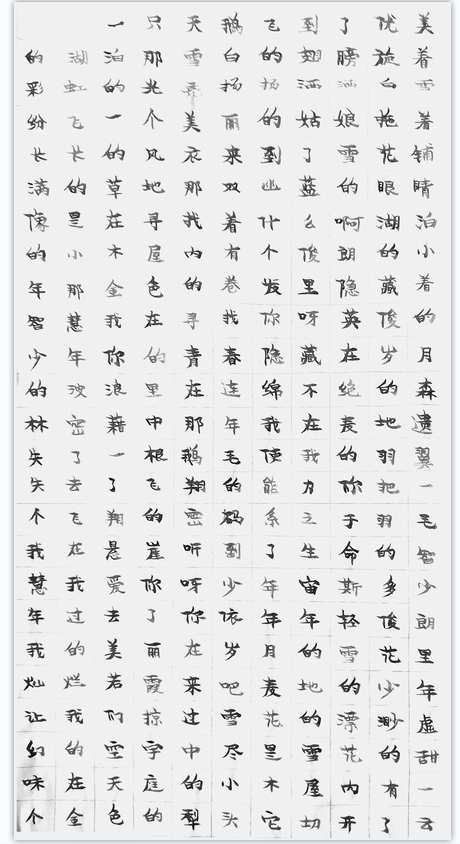 一只天鹅飞到了优美
的湖泊那雪白的翅膀旋着
彩虹的光亮扬扬洒洒白雪
纷飞一个美丽的姑娘拖着
长长的风衣来到了雪花铺
满的草地那双幽蓝的眼睛
像是在寻找着什么啊湖泊
的小木屋内有个俊朗的小
年那金色的卷发里隐藏着
智慧我在寻找你呀英俊的
少年你的青春隐藏在岁月
的波浪里在连绵不绝的森
林密藉中那年我在麦地遗
失了一根鹅毛使我的羽翼
失去了飞翔的能力你把一
个飞翔的密码系之于羽毛
我在悬崖听到了生命的智
慧我爱你呀少年宙斯多少
年过去了你依年年轻俊朗
我的美丽在岁月的雪花里
灿烂若霞来吧麦地的少年
让我们掠过雪花的漂渺虚
幻的空宇中尽是雪花的甜
味在天庭的小木屋内有一
个金色的犁头它切开了云